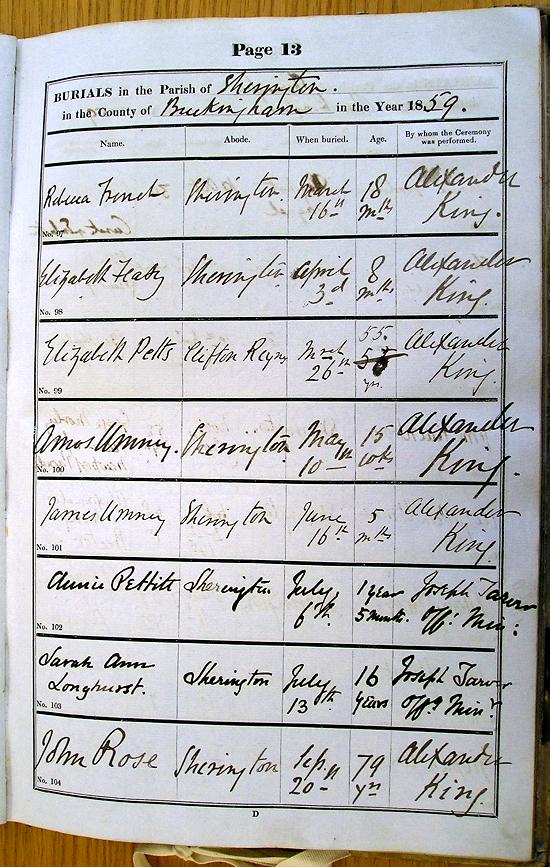 Page 13
BURIALS in the Parish of Sherington.
in the County of Buckingham in the Year 1859.
Name. Abode. When buried. Age. By whom the Ceremony was performed.
Rebecca French Sherington March 16th 18 mths Alexander King.
No. 97
Elizabeth Sherington April 3d 8 mths Alexander King.
No. 98
Elizabeth Petts Clifton Reynes 26th 55. yrs. Alexander King.
No. 99
Amos Umney. Sherington May 10th 15 Alexander King.
No. 100
James Umney Sherington June 16th 5 mths Alexander King.
No. 101
Annie Pettitt Sherington July, 6th. 1 year 5 month. Joseph Tarver Offg Min:
No. 102
Sarah Ann Longhurst. Sherington July 13th 16 years Joseph Tarver Offg Minr
No. 103
John Rose Sherington Sep. 20th 79 yrs Alexander King.
No. 104
D